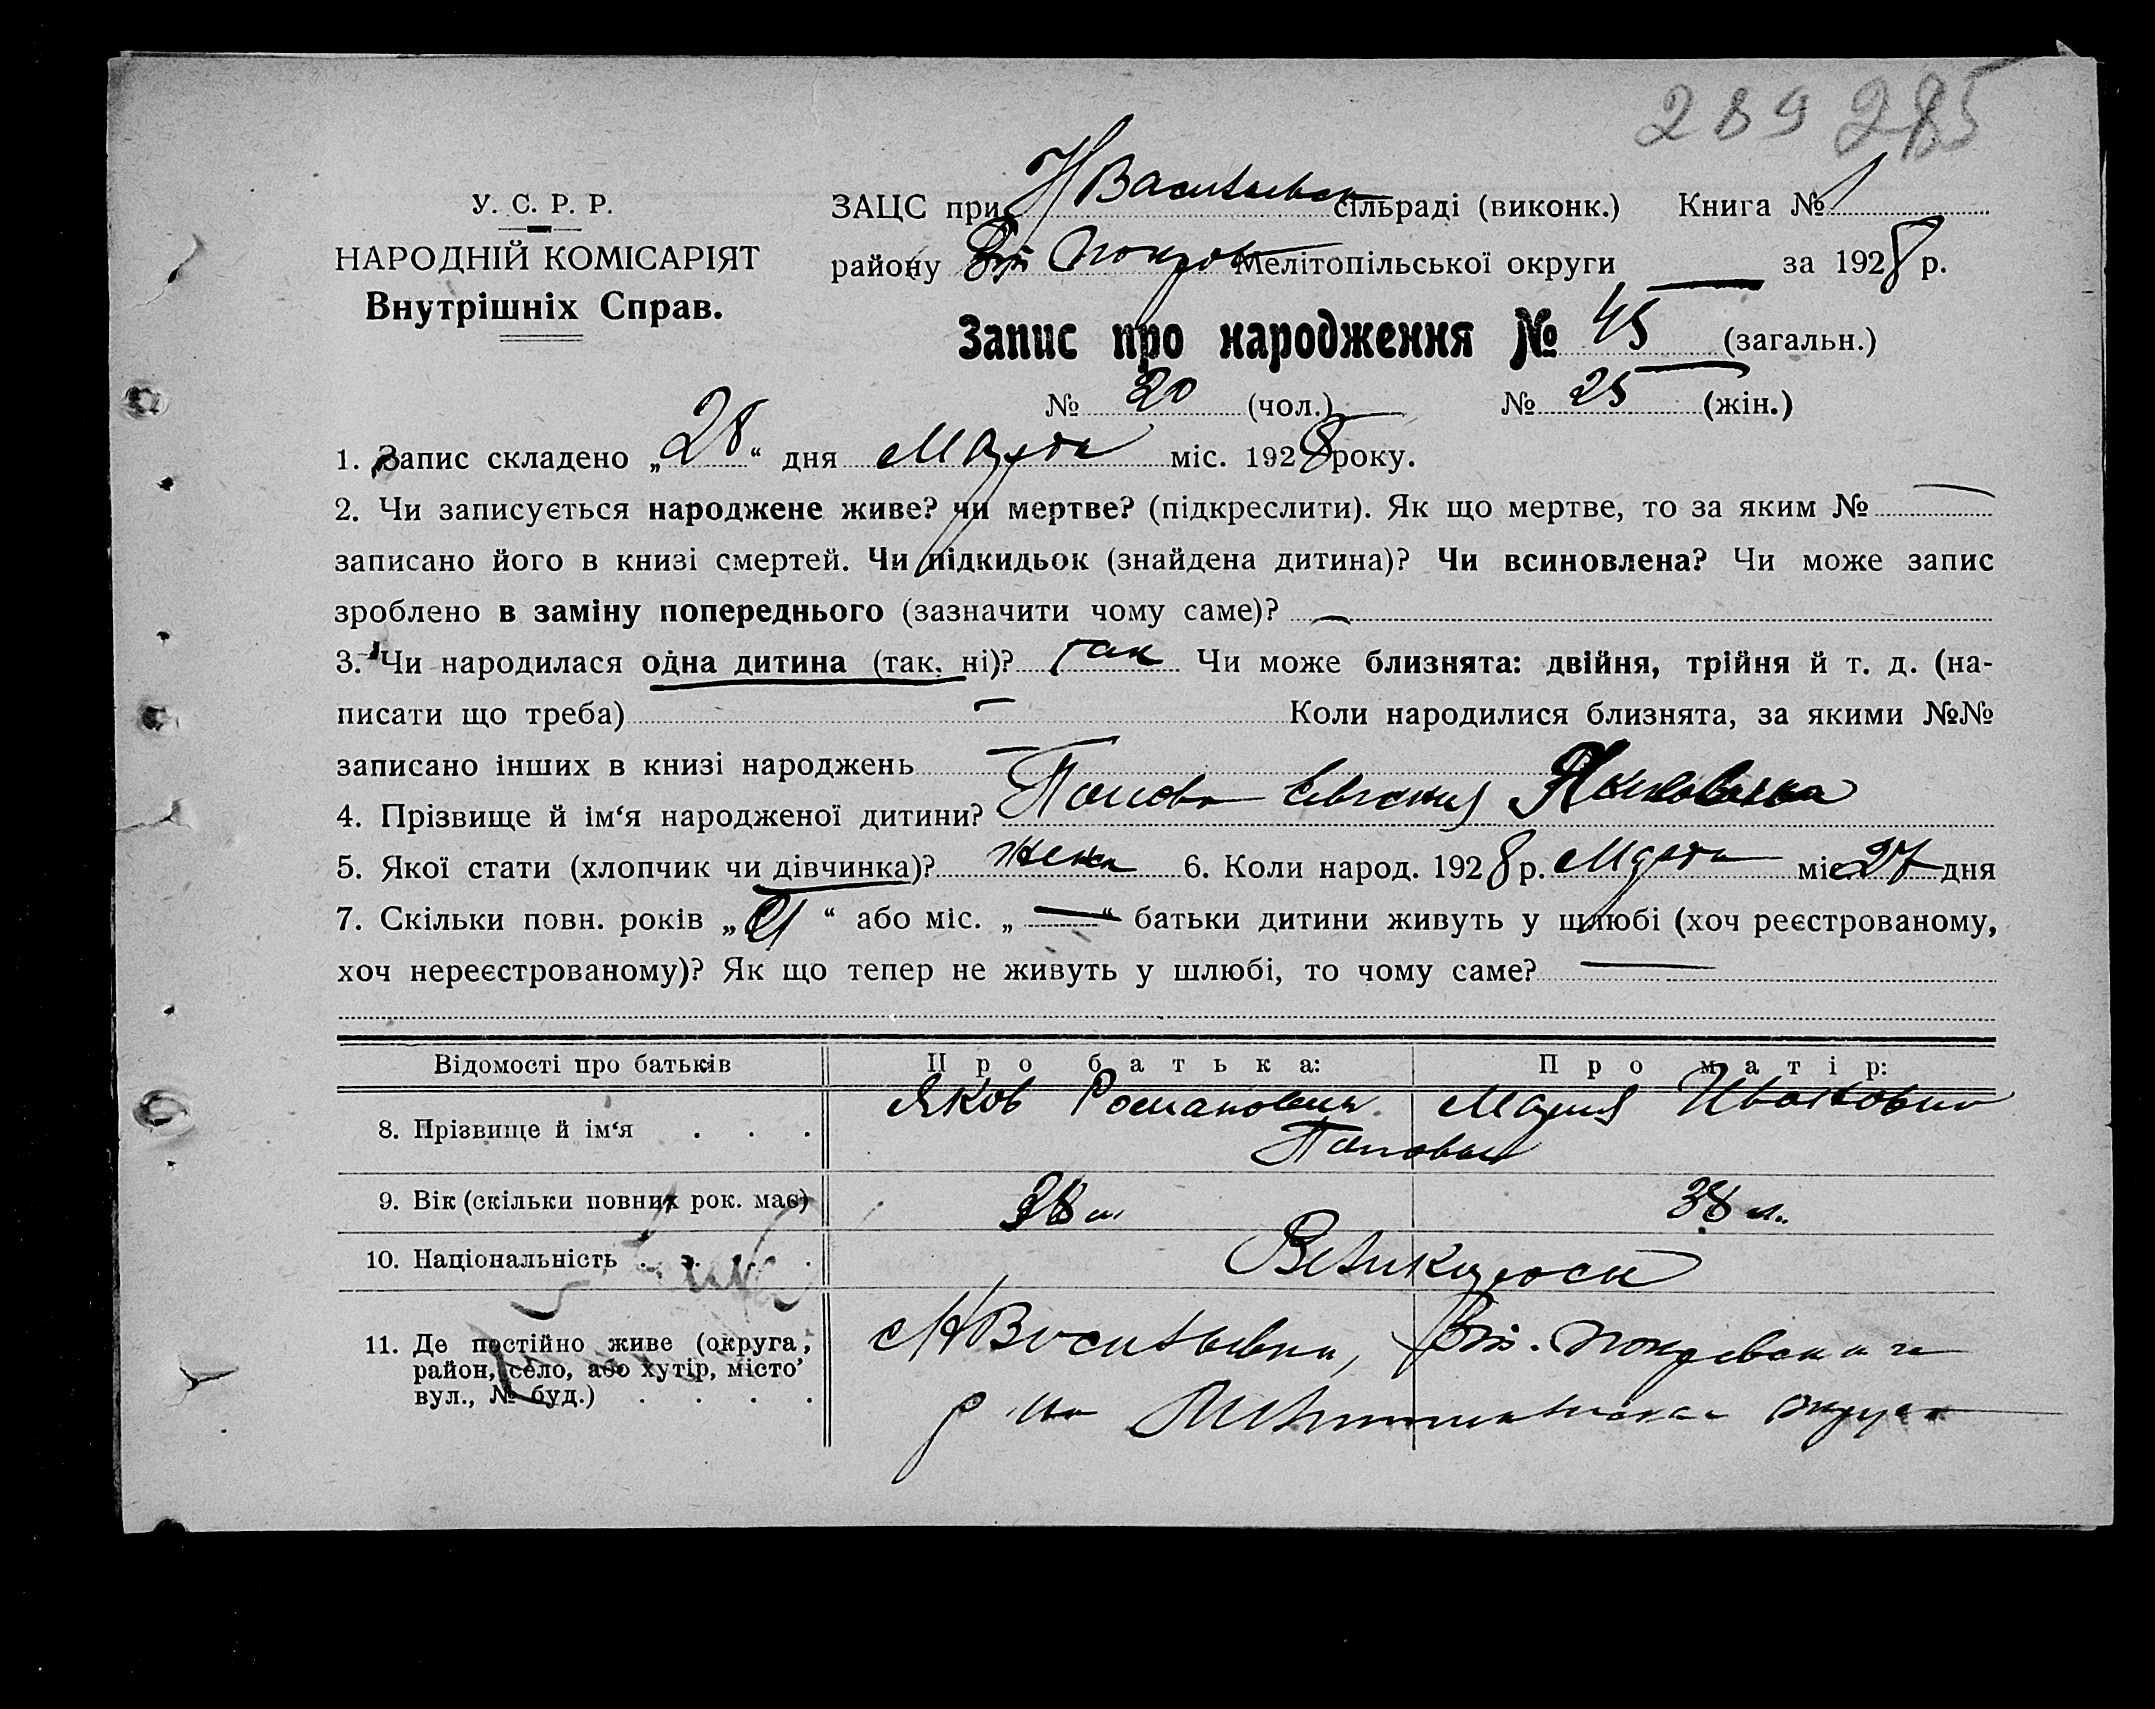 289 285
У. С. Р. Р.
НАРОДНІЙ КОМІСАРІЯТ
Внутрішніх Справ.
ЗАЦС при НВасильевск сільраді (виконк.) Книга № 1
району Вл Покров Мелітопільської округи за 1928 р.
Запис про народження № 45 (загальн.)
№ 20 (чол.) № 25 (жін.)
1. Запис складено „28“ дня Марта міс. 1928 року.
2. Чи записується народжене живе? чи мертве? (підкреслити). Як що мертве, то за яким №
записано його в книзі смертей. Чи підкидьок (знайдена дитина)? Чи всиновлена? Чи може запис
зроблено в заміну попереднього (зазначити чому саме)? —
3. Чи народилася одна дитина (так, ні)? так Чи може близнята: двійня, трійня й т. д. (на-
писати що треба) — Коли народилися близнята, за якими №№
записано інших в книзі народжень —
4. Прізвище й ім‘я народженої дитини? Попова Яковлевна
5. Якої стати (хлопчик чи дівчинка)? жен 6. Коли народ. 1928 р. Марта міс. 27 дня
7. Скільки повн. років „ “ або міс. „—“ батьки дитини живуть у шлюбі (хоч реєстрованому,
хоч нереєстрованому)? Як що тепер не живуть у шлюбі, то чому саме? —
Відомості про батьків Про батька: Про матір:
8. Прізвище й ім‘я . . . Яков Романович Мария Ивановна
Поповы
9. Вік (скільки повних рок. має) 38 л. 38 л.
10. Національність . . . . Великоросы
11. Де постійно живе (округа,
район, село, або хутір, місто’
вул., № буд.) . . . .
с НВасильевка, Вл. Покровского
р на Мелитопольской округи